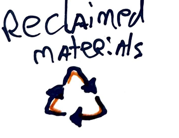 Reclaimed
materials